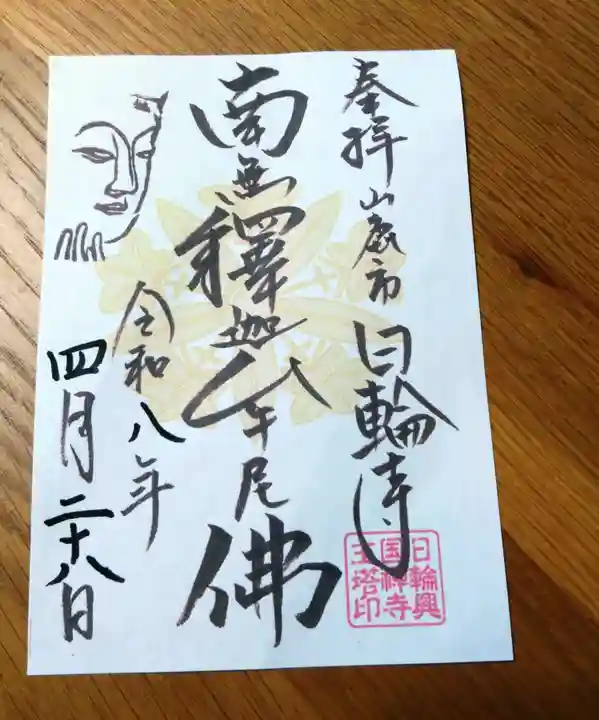 奉拝 山鹿市 日輪寺
南無釋迦牟尼佛
令和八年
四月二十八日
日輪興
国禅寺
王塔印